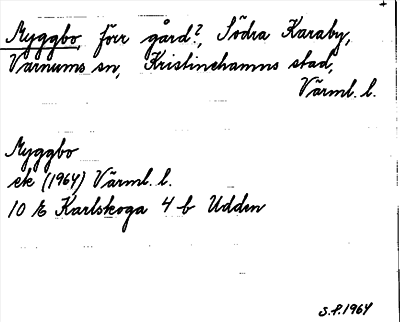 +
Myggbo, förr gård?, Södra Karaby,
Varnums sn, Kristinehamns stad,
Värml. l.
Myggbo
ek (1964) Värml. l.
10 E Karlskoga 4 b Udden
S.P. 1964